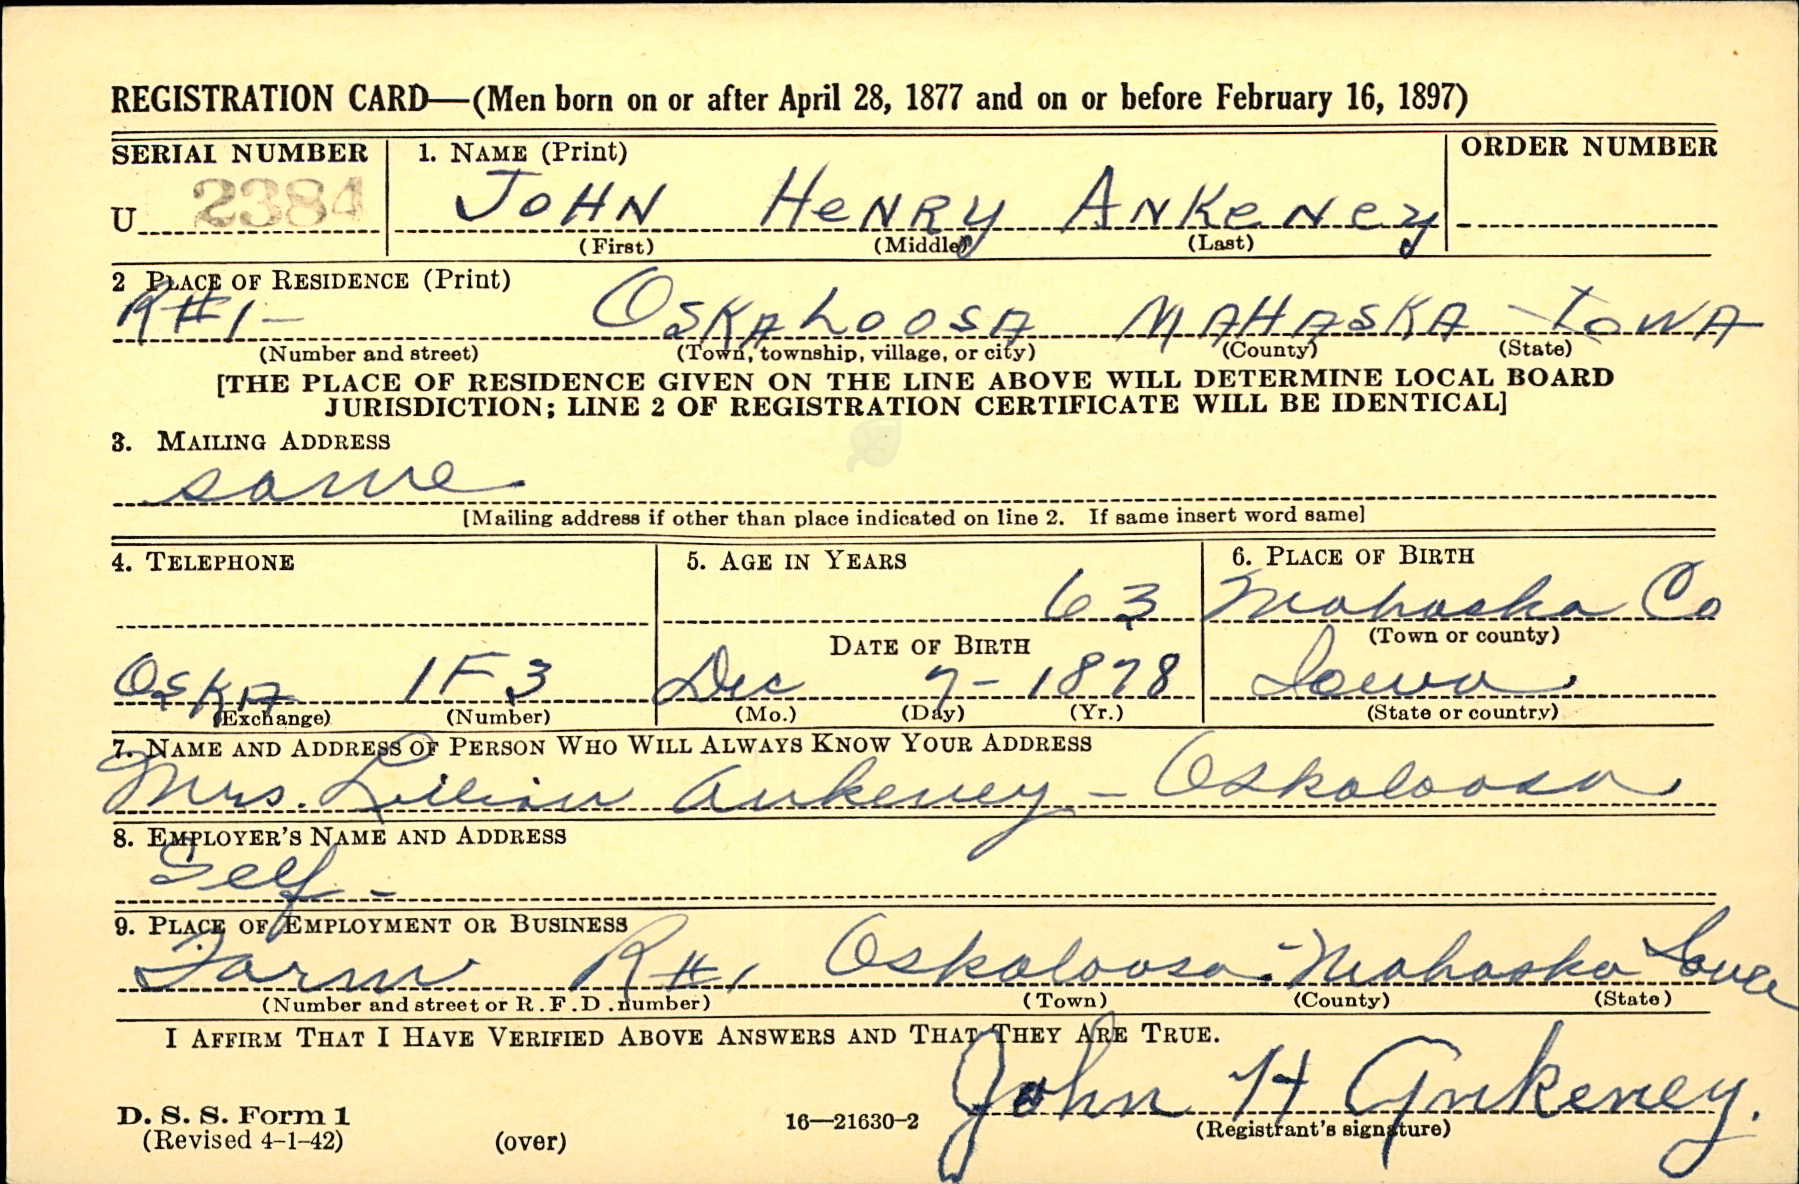 REGISTRATION CARD—(Men born on or after April 28, 1877 and on or before February 16, 1897)
SERIAL NUMBER 1. NAME (Print) ORDER NUMBER
U 2384 JOHN HENRY ANKENEY
(First) (Middle) (Last)
2 PLACE OF RESIDENCE (Print)
R#1- OSKALOOSA MAHASKA IOWA
(Number and street) (Town, township, village, or city) (County) (State)
[THE PLACE OF RESIDENCE GIVEN ON THE LINE ABOVE WILL DETERMINE LOCAL BOARD
JURISDICTION; LINE 2 OF REGISTRATION CERTIFICATE WILL BE IDENTICAL]
3. MAILING ADDRESS
same
[Mailing address if other than place indicated on line 2. If same insert word same]
4. TELEPHONE 5. AGE IN YEARS 6. PLACE OF BIRTH
63 Mahaska Co
DATE OF BIRTH (Town or county)
OSKA 1F3 Dec 7-1878 Iowa
(Exchange) (Number) (Mo.) (Day) (Yr.) (State or country)
7. NAME AND ADDRESS OF PERSON WHO WILL ALWAYS KNOW YOUR ADDRESS
Mrs. Lilian Ankeney - Oskaloosa
8. EMPLOYER'S NAME AND ADDRESS
Self -
9. PLACE OF EMPLOYMENT OR BUSINESS
Farm R#1 Oskaloosa - Mahaska Iowa
(Number and street or R.F.D. number) (Town) (County) (State)
I AFFIRM THAT I HAVE VERIFIED ABOVE ANSWERS AND THAT THEY ARE TRUE.
John H Ankeney.
D. S. S. Form 1 16—21630-2 (Registrant's signature)
(Revised 4-1-42) (over)